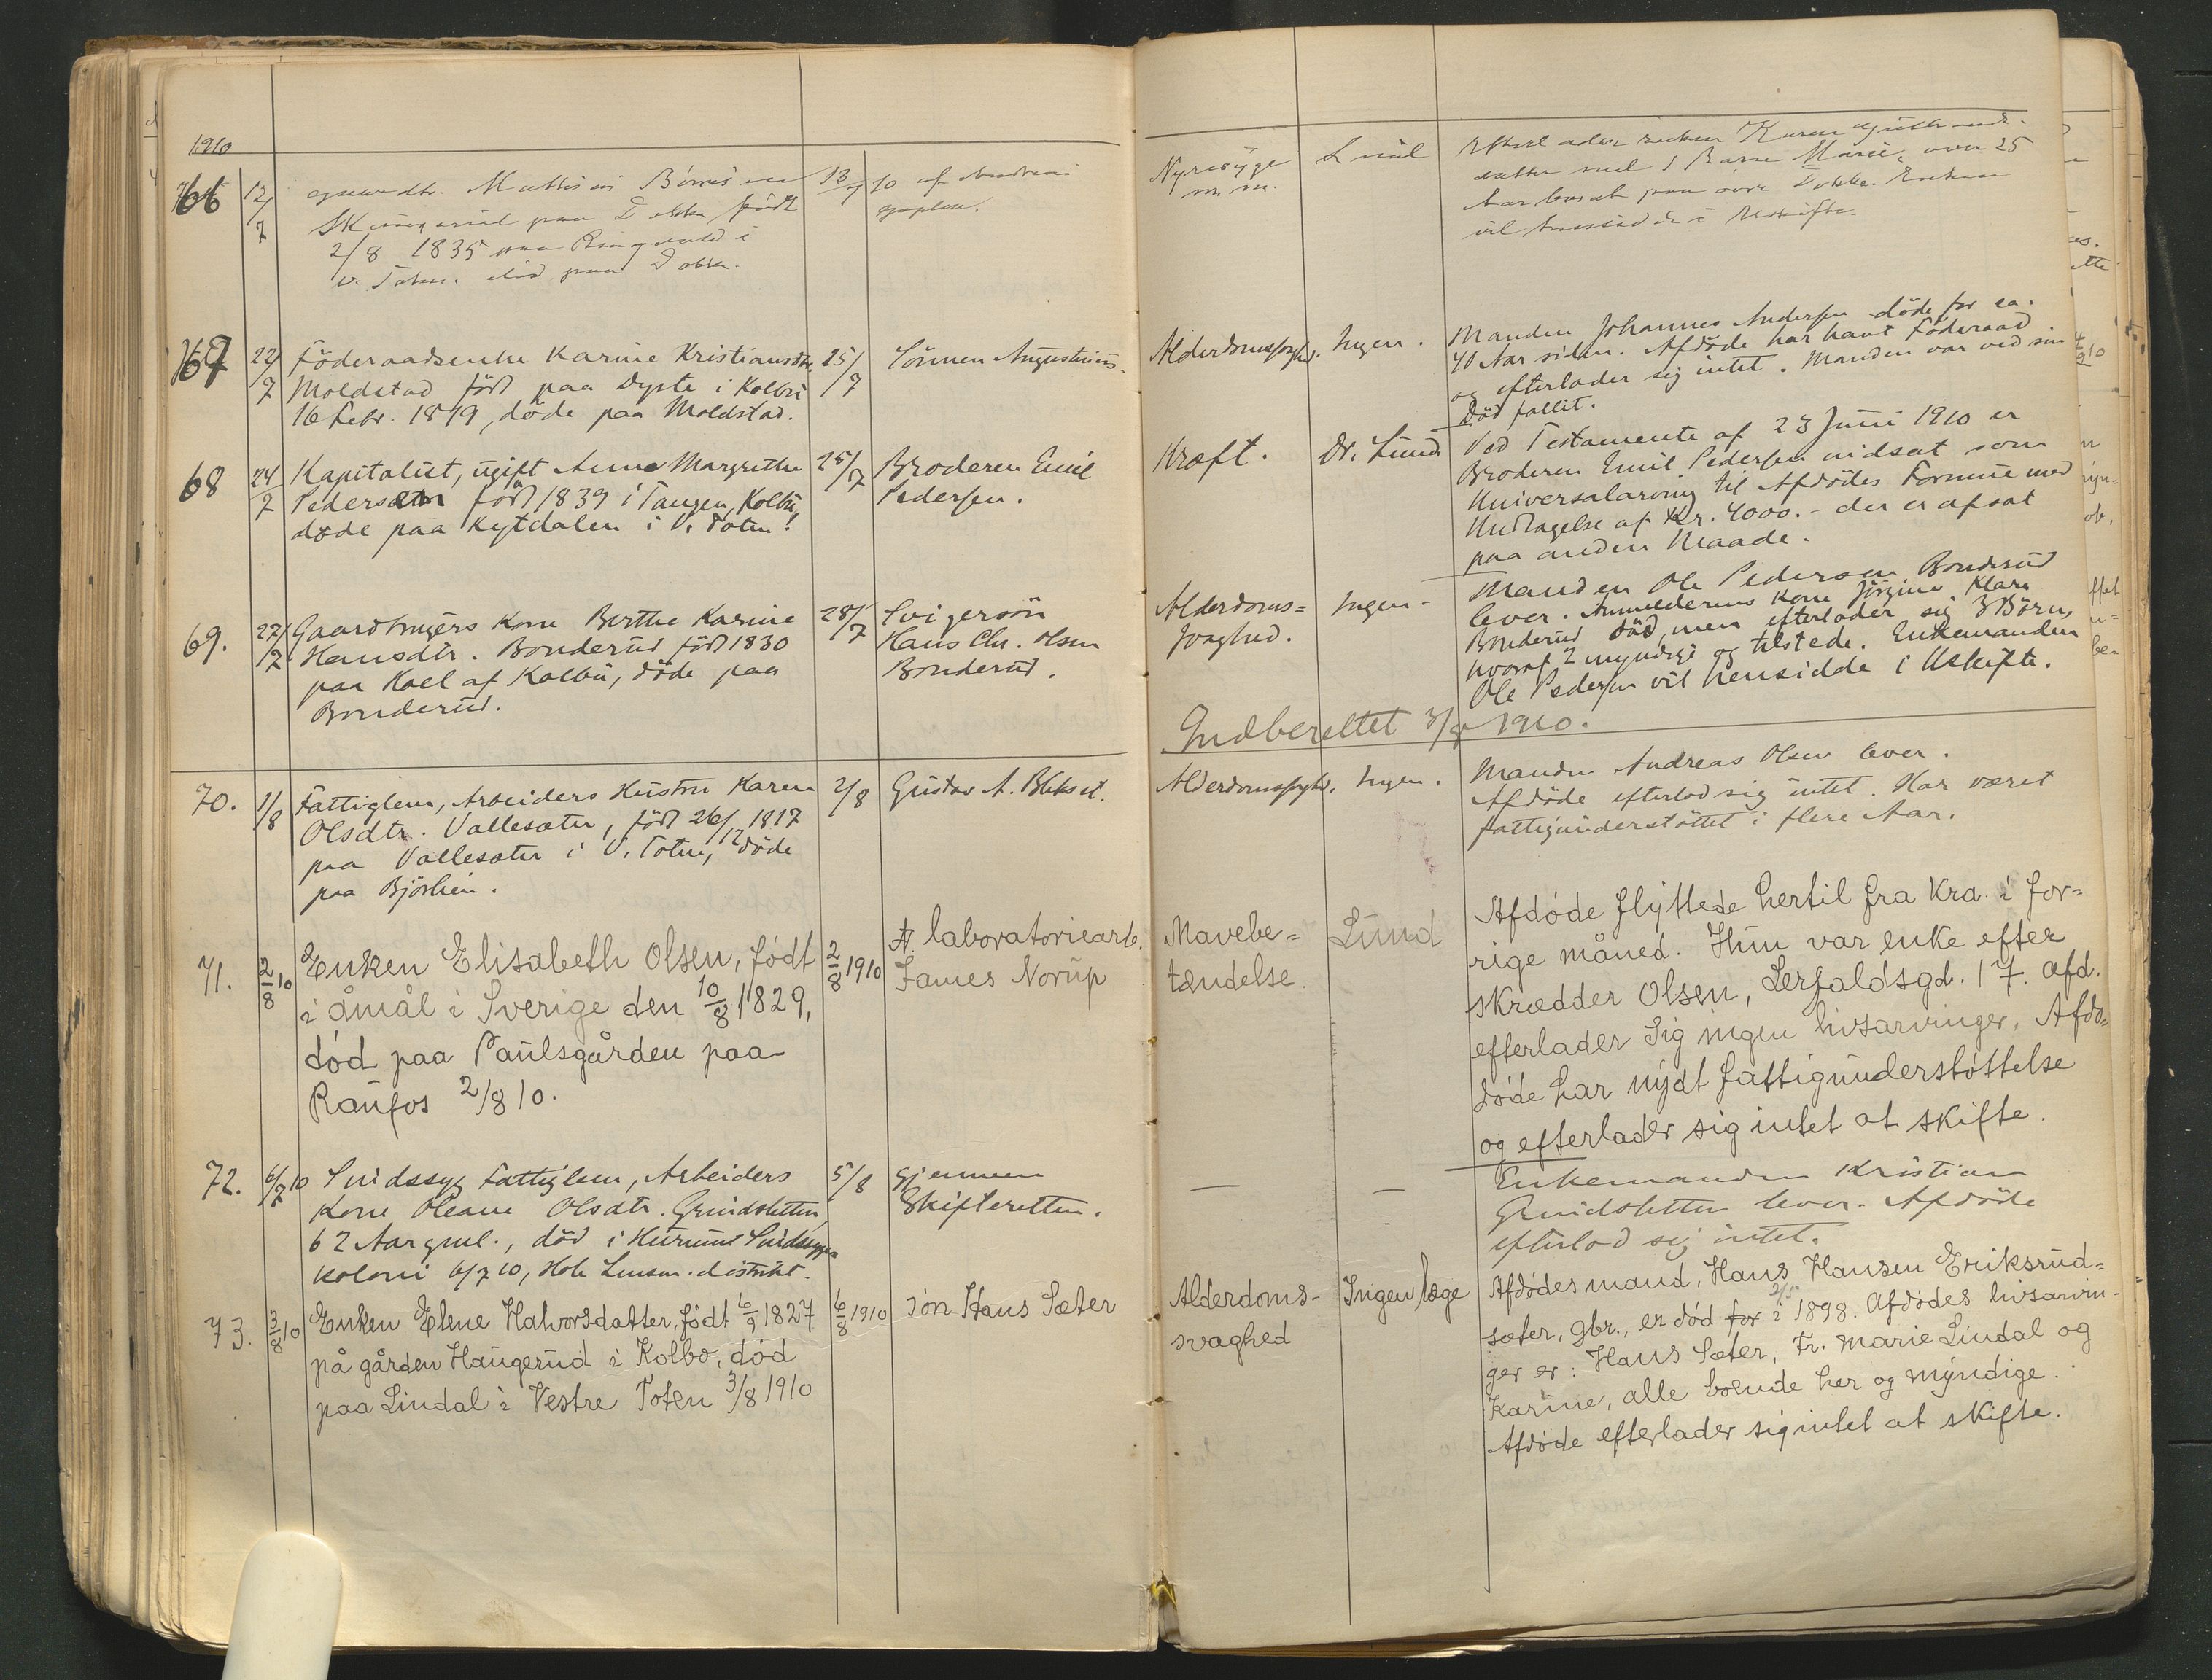 1910
66
12/7
13/7 10 af
Skungerud paa Dokka født
2/8 1835 paa Ringvold i
V. Toten. død paa Dokka.
Nyresyge
m. m.
med 1 Barn Marie, over 25
Aar bosat paa øvre Dokka. Enken
vil hensidde i Uskifte.
67
22/7
Föderaadsenke Karine Kristiansdtr.
Moldstad född paa Dyste i Kolbu
16 Febr. 1819, döde paa Moldstad.
25/7
Sönnen Augustinus.
Alderdomssvaghed.
Ingen.
Manden Johannes Andersen döde for ca.
40 Aar siden. Afdöde har havt Föderaad
og efterlader sig intet. Manden var ved sin
Död fallit.
68
24/7
Kapitalist, ugift Anne Margrethe
Pedersdtr. född 1839 i Tangen, Kolbu,
døde paa Kytdalen i V. Toten.
25/7
Broderen Emil
Pedersen.
Kræft.
Dr. Lund
Ved Testamente af 23 Juni 1910 er
Broderen Emil Pedersen indsat som
Universalarving til Afdødes Formue med
Undtagelse af Kr. 4000.- der er afsat
paa anden Maade.
69.
27/7
Gaardbrugers Kone Berthe Karine
Hansdtr. Bonderud född 1830
paa Hoel af Kolbu, döde paa
Bonderud.
28/7
Svigersön
Hans Chr. Olsen
Bonderud.
Alderdoms=
svaghed.
Ingen.
Manden Ole Pedersen Bonderud
lever. Anmelderens Kone Jörgine Klara
Bonderud död, men efterlader sig 3 Börn,
hvoraf 2 myndige og tilstede. Enkemanden
Ole Pedersen vil hensidde i Uskifte.
Indberettet 3/8 1910.
70.
1/8
Fattiglem, Arbeiders Hustru Karen
Olsdtr. Vallesæter, född 26/12 1817
paa Vallesæter i V. Toten, döde
paa Björlien.
2/8
Gustav A. Blekset.
Alderdomssvghd.
Ingen.
Manden Andreas Olsen lever.
Afdöde efterlod sig intet. Har været
fattigunderstöttet i flere Aar.
71.
2/8 10
Enken Elisabeth Olsen, født
i Åmål i Sverige den 10/8 1829,
død paa Paulsgården paa
Raufos 2/8 10.
2/8 1910
laboratoriearb.
James Norup
Mavebe=
tændelse.
Lund
Afdøde flyttede hertil fra Kra. i for=
rige måned. Hun var enke efter
skrædder Olsen, Lerfaldsgd. 17. Afd.
efterlader sig ingen livsarvinger. Afdø=
døde har nydt fattigunderstøttelse
og efterlader sig intet at skifte.
72.
6/7 10
Sindssyg Fattiglem, Arbeiders
Kone Oleane Olsdtr. Grindstetten
62 Aar gml., död i Hurums Sindssyge
koloni 6/7 10, Hole Lensm.distrikt.
5/8
Gjennem
Skifteretten.
—
—
Enkemanden Kristian
Grindstetten lever. Afdöde
efterlod sig intet.
73.
3/8 10
Enken Elene Halvorsdatter, født 6/9 1827
på gården Haugerud i Kolbo, død
paa Lindal i Vestre Toten 3/8 1910
6/8 1910
Søn Hans Sæter
Alderdoms-
svaghed
Ingen læge
Afdødes mand, Hans Hansen Eriksrud=
sæter, gbr., er død for i 2/5 1898. Afdødes livsarvin-
ger er: Hans Sæter, Fr. Marie Lindal og
Karine, alle boende her og myndige.
Afdøde efterlader sig intet at skifte.